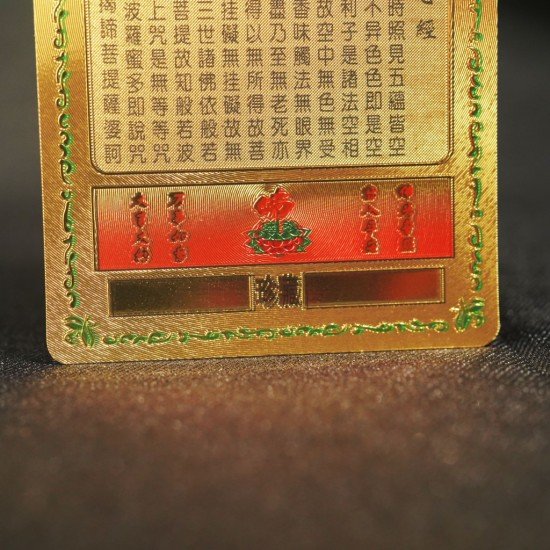 心經
時照見五蘊皆空
不异色色即是空
利子是諸法空相
故空中無色無受
香味觸法無眼界
盡乃至無老死亦
得以無所得故菩
挂礙無挂礙故無
三世諸佛依般若
菩提故知般若波
上咒是無等等咒
波羅蜜多即說咒
揭諦菩提薩婆訶
佛
珍藏